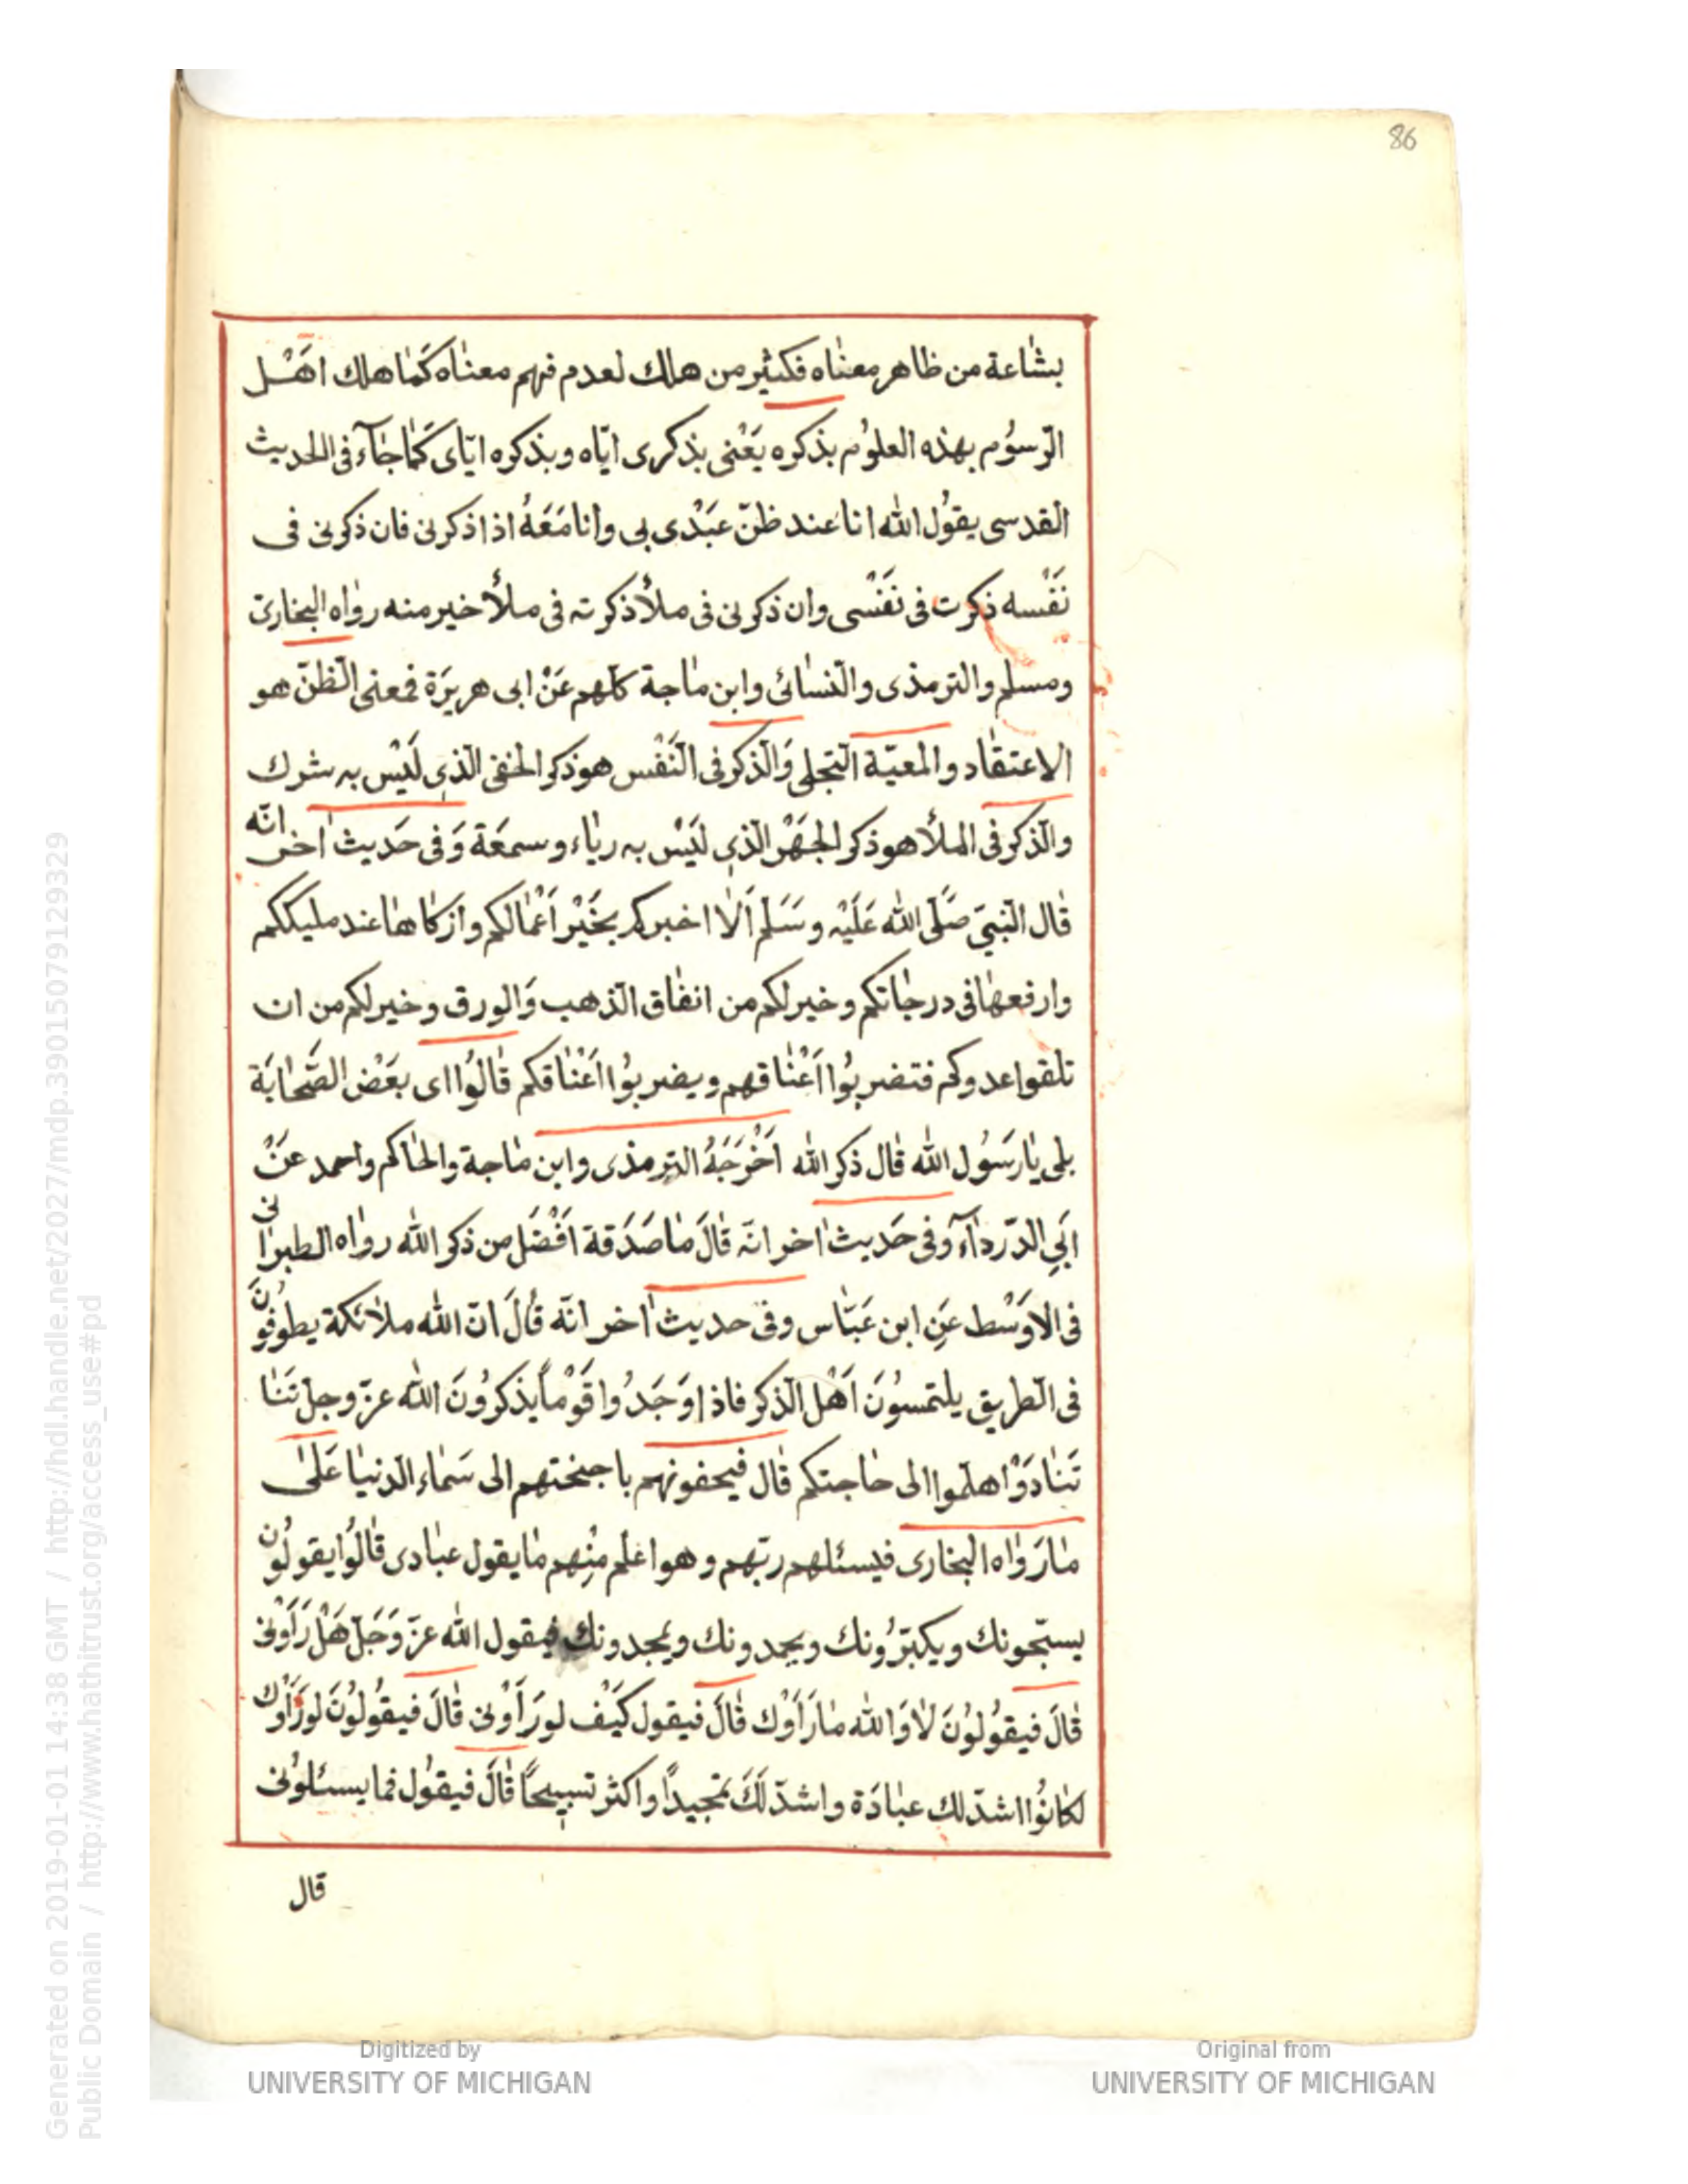 86
بشاعة من ظاهر معناه فكثير من هلك لعدم فهم معناه كَمٰا هلك اهَـْـل
الرّسوُم بهذه العلوُم بذكره يَعْنى بذكرى ايّاه وبذكره ايّاى كَمٰا جٰاۤء فى الحديث
القدسى يقوُل الله انا عند ظنّ عَبْدى بى وانا مَعَهُ اذا ذكرنى فان ذكرنى فى
نَفْسه ذكرت فى نَفْسى وان ذكرنى فى ملأ ذكرته فى ملأ خير منه روٰاه البخارىّ
ومسلم والترمذى والنّسٰائى وابن مٰاجة كلّهم عَنْ ابى هريرَة فمعنى الظنّ هو
الاعتقٰاد والمعيّة التّجلى وَالذّكر فى النّفْس هو ذكر الخفى الّذى لَيْس به شرك
والذّكر فى الملأ هو ذكر الجهَرْ الّذى لَيْس به ريٰاء وسمعَة وَفى حَديث اٰخر انّه
قٰال النّبىّ صَلَّى الله عَلَيْه وسَلَم اَلاٰ اخبركم بخَيْر اَعْمٰالكم وازكاهٰا عند مليككم
وارفعهٰا فى درجٰاتكم وخير لكم من انفٰاق الذّهب وَالورق وخير لكم من ان
تلقوا عدوكم فتضربوُا اَعْنٰاقهم ويضربوُا اَعْنٰاقكم قٰالوُا اى بعَضْ الصَّحٰابَة
بلى يٰا رسَوُل الله قٰال ذكر الله اَخْرَجَهُ الترمذى وابن مٰاجة والحٰاكم واحمد عَنْ
اَبىِ الدّردٰاۤء وفى حَديث اٰخر انّه قٰالَ مٰا صَدَقة افَضْلَ من ذكر الله روٰاه الطبرانى
فى الاَوَسْط عَنِ ابن عَبّٰاس وفى حديث اٰخر انّه قٰالَ انّ الله ملاٰئكة يطوُفوُنَ
فى الطّريق يلتمسوُنَ اَهْل الذّكر فاذا وَجَدُوا قَوْماً يذكروُنَ الله عزّ وجلّ تَنٰا
تَنٰادَوْا هلمّوا الى حٰاجتكم قٰال فيحفونهم باجنحتهم الى سَمٰاء الدّنيٰا عَلىٰ
مٰا رَوٰاه البخارى فيسئلهم ربّهم وهو اعَلم منِْهم مٰا يقول عبٰادى قٰالوُا يقولوُن
يسبّحونك ويكبّروُنك ويحمدونك ويمجدونك فيقول الله عزّ وَجَلّ هَلْ رَأَوْنى
قٰالَ فيقوُلوُنَ لاٰ وَالله مٰا رَأَوْك قٰالَ فيقول كَيْف لو رَأَوْنى قٰالَ فيقُولوُنَ لو رَأَوْك
لكٰانوُا اشدّ لك عبٰادَة واشدّ لَكَ تمجيداً واكثر تسبيحاً قٰالَ فيقوُل فما يسئلوُنى
قال
Generated on 2019-01-01 14:38 GMT / http://hdl.handle.net/2027/mdp.39015079129329
Public Domain / http://www.hathitrust.org/access_use#pd
Digitized by
UNIVERSITY OF MICHIGAN
Original from
UNIVERSITY OF MICHIGAN